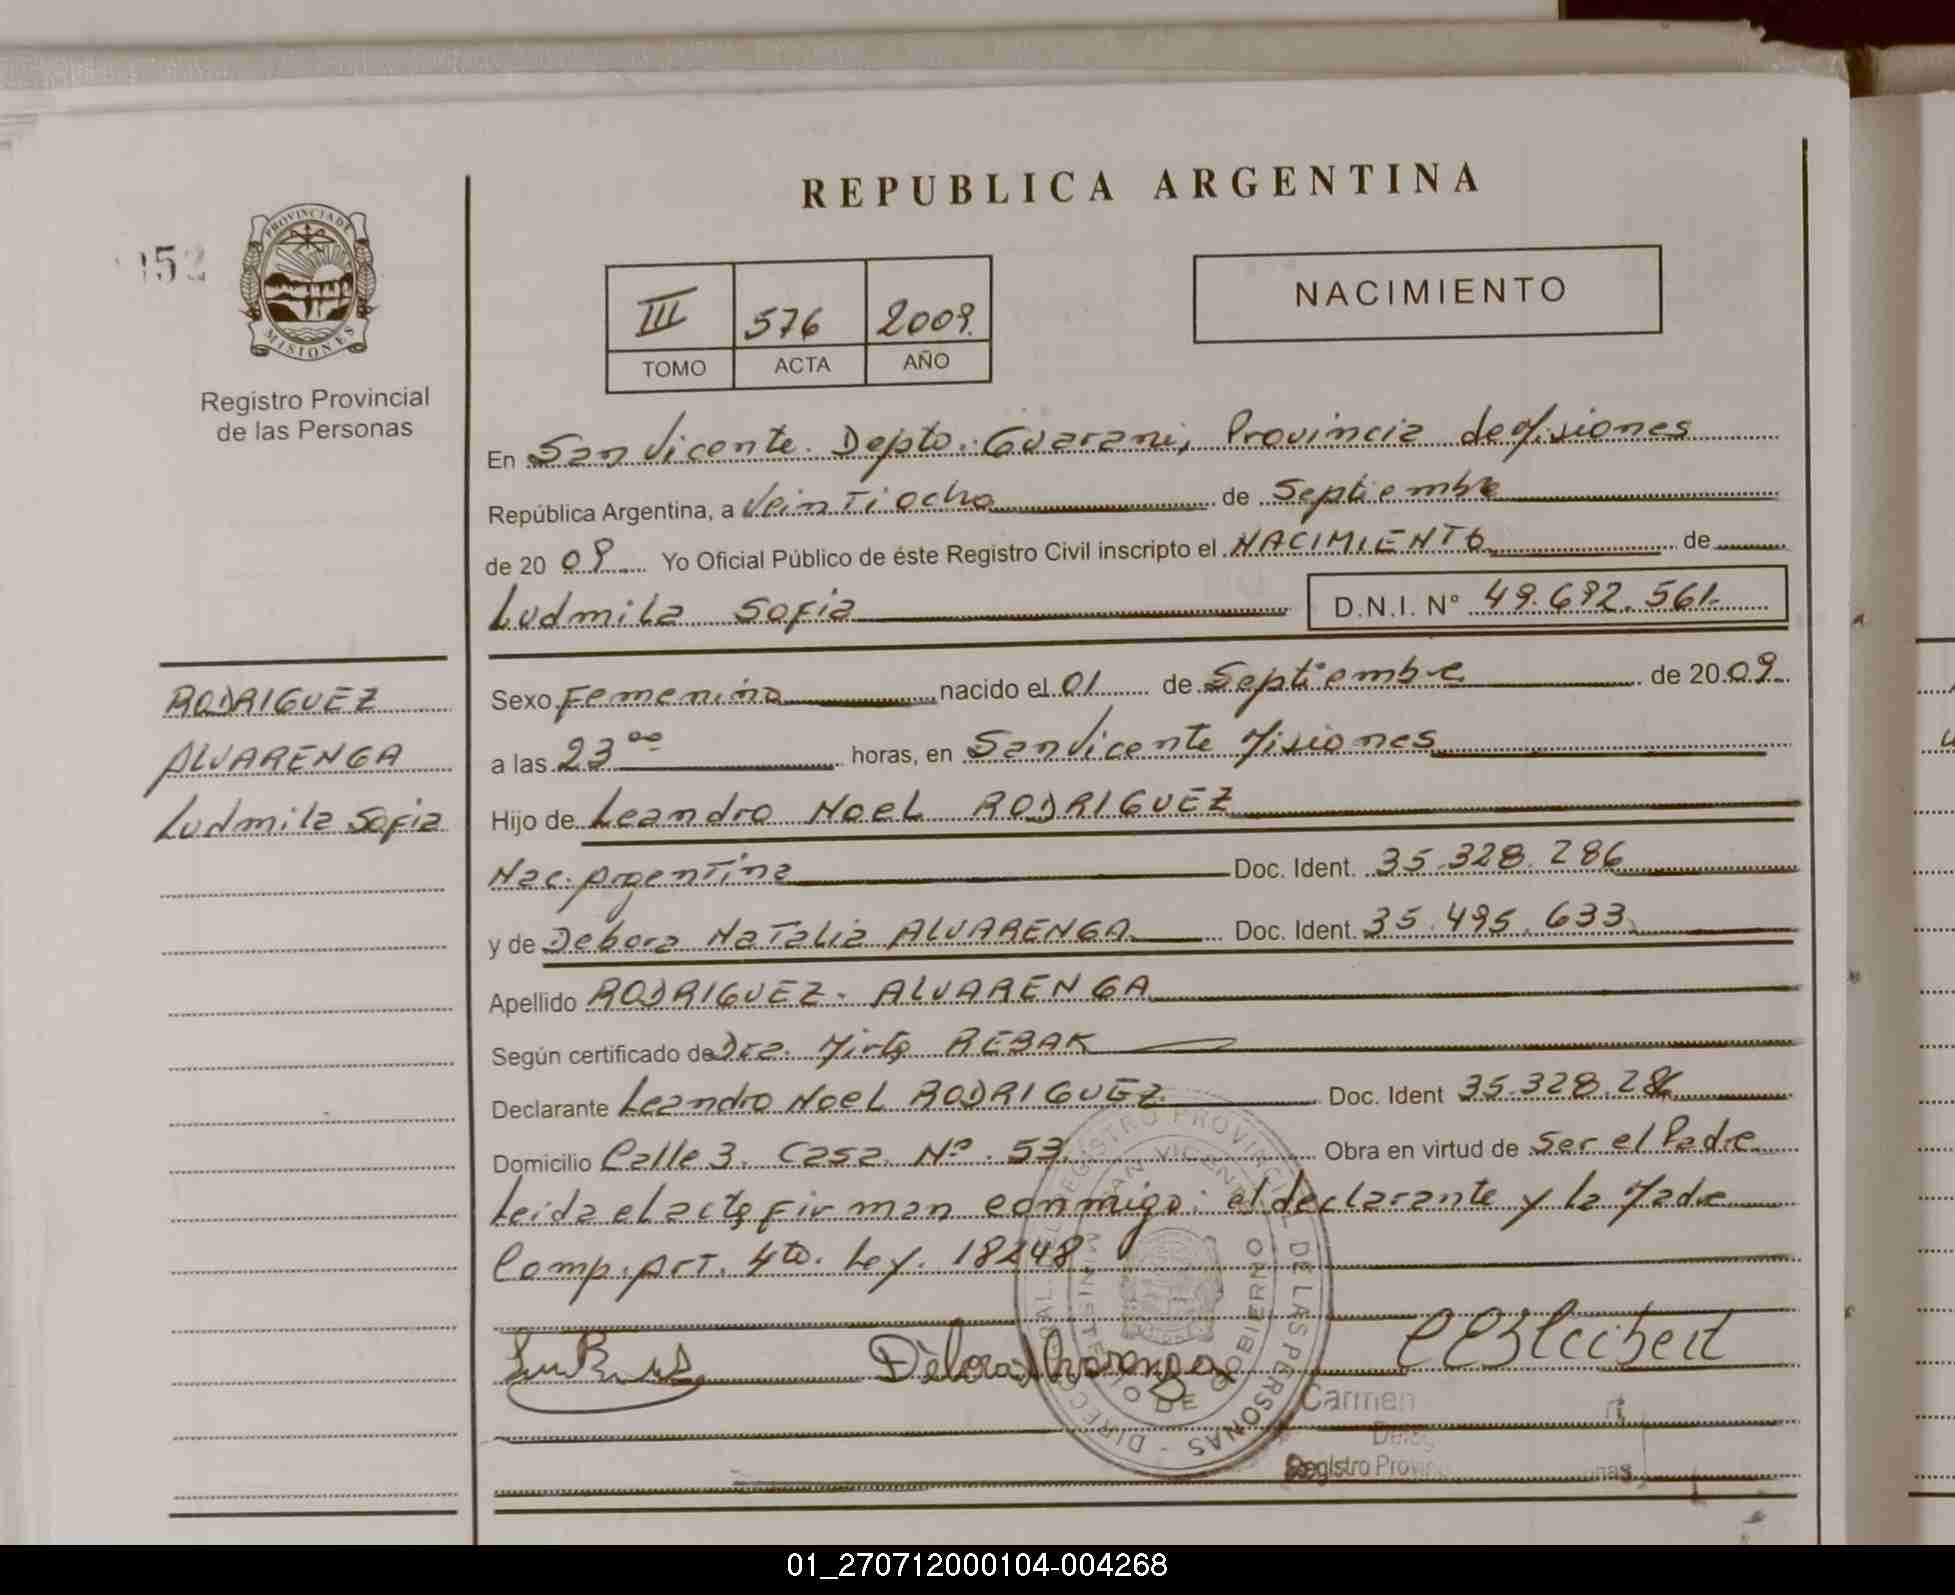 REPUBLICA ARGENTINA
152
PROVINCIA DE MISIONES
Registro Provincial
de las Personas
III 576 2009.
TOMO ACTA AÑO
NACIMIENTO
En San Vicente. Depto. Guarani, Provincia de Misiones
República Argentina, a Veintiocho de Septiembre
de 2009 Yo Oficial Público de éste Registro Civil inscripto el NACIMIENTO de
Ludmila Sofia D.N.I. N° 49.692.561.
RODRIGUEZ
ALVARENGA
Ludmila Sofia
Sexo Femenino nacido el 01 de Septiembre de 2009.
a las 23 00 horas, en San Vicente Misiones
Hijo de Leandro Noel RODRIGUEZ
Nac. Argentina Doc. Ident. 35.328.286
y de Debora Natalia ALVARENGA Doc. Ident. 35.495.633
Apellido RODRIGUEZ - ALVARENGA
Según certificado de Dra. Mirta REBAK
Declarante Leandro Noel RODRIGUEZ Doc. Ident 35.328.286
Domicilio Calle 3. Casa Nº 53. Obra en virtud de Ser el Padre
Leida el acta firman conmigo: el declarante y la Madre
Comp. Art. 4to. Ley. 18248
Debora Alvarenga
DIRECC REGISTRO PROVINCIAL DE LAS PERSONAS -
SAN VICENTE
MINISTE O DE GOBIERNO
Carmen
Registro Provin
01_270712000104-004268